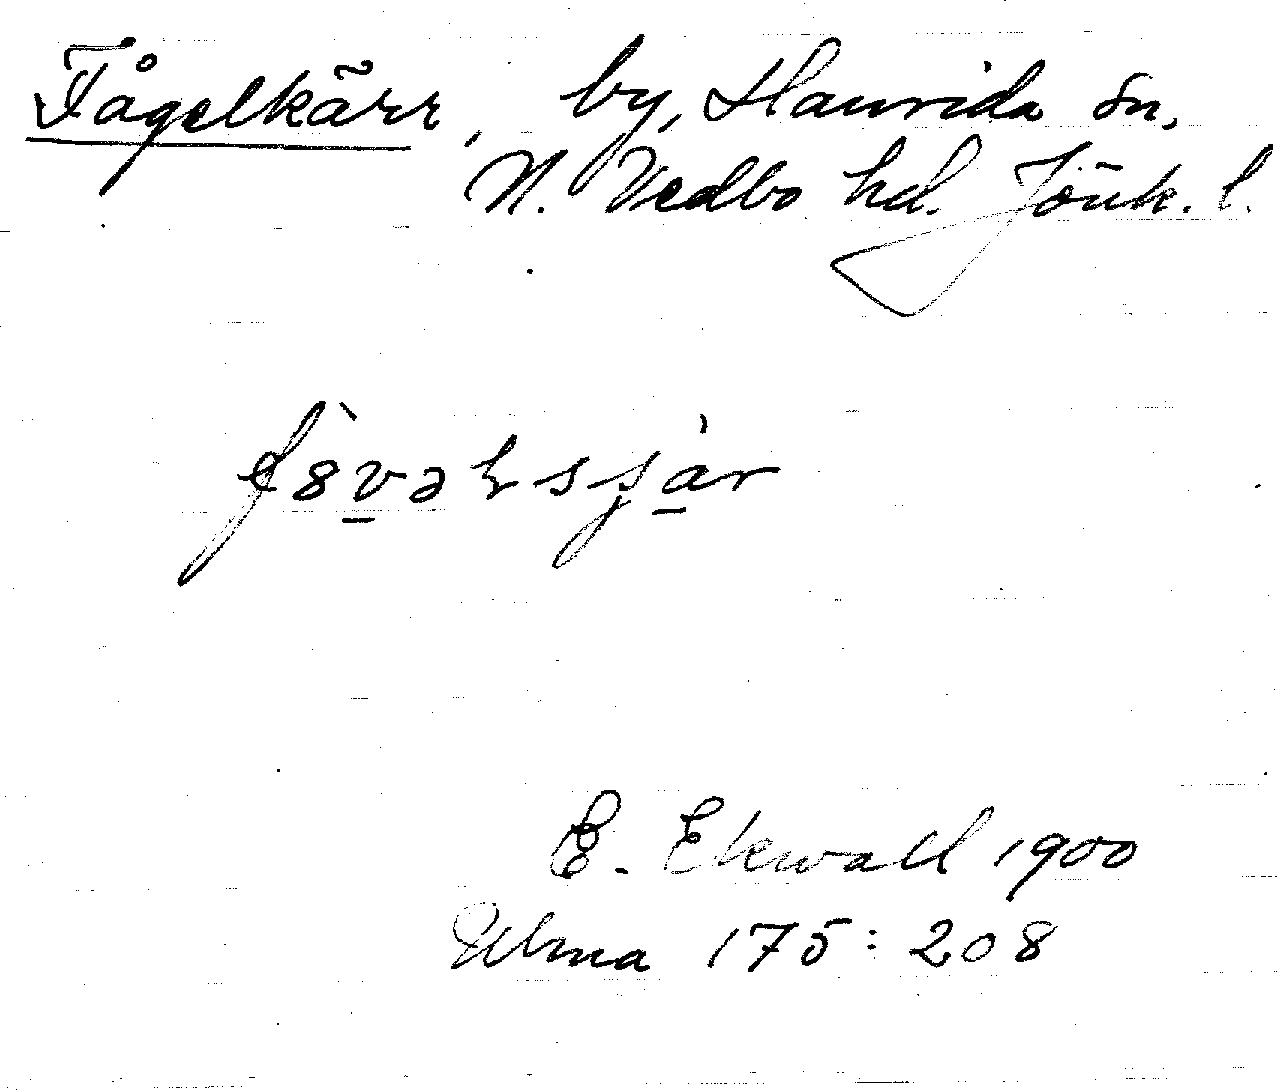 Fågelkärr, by, Haurida sn,
N. Vedbo hd. Jönk. l.
E. Ekwall 1900
Ulma 175:208